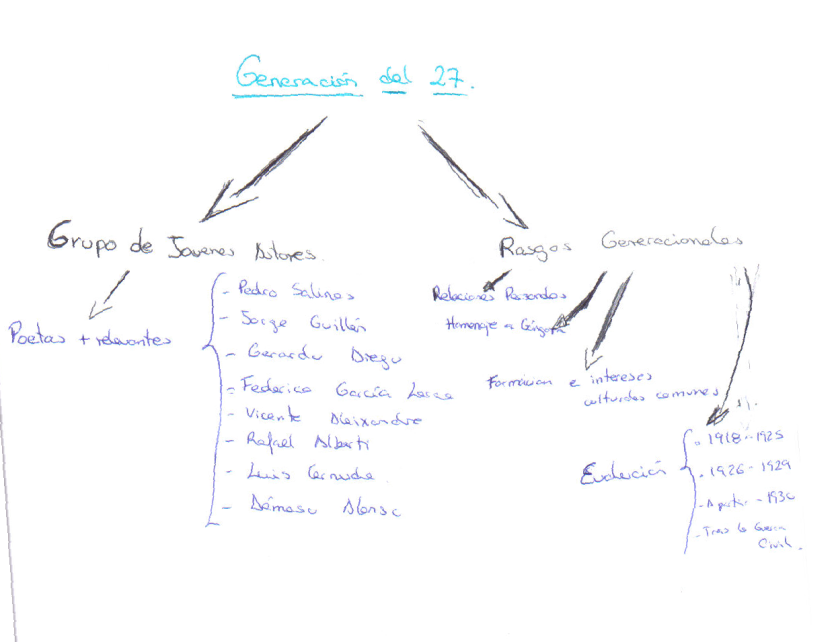 Generación del 27.
Grupo de Jovenes Autores.
Rasgos Generacionales
Poetas + relevantes
- Pedro Salinas
- Jorge Guillén
- Gerardo Diego
- Federico García Lorca
- Vicente Aleixandre
- Rafael Alberti
- Luis Cernuda
- Dámaso Alonso
Relaciones Personales
Homenaje a Góngora
Formacion e intereses
culturales comunes
Evolución
- 1918 - 1925
- 1926 - 1929
- A partir - 1930
- Tras la Guerra
Civil.